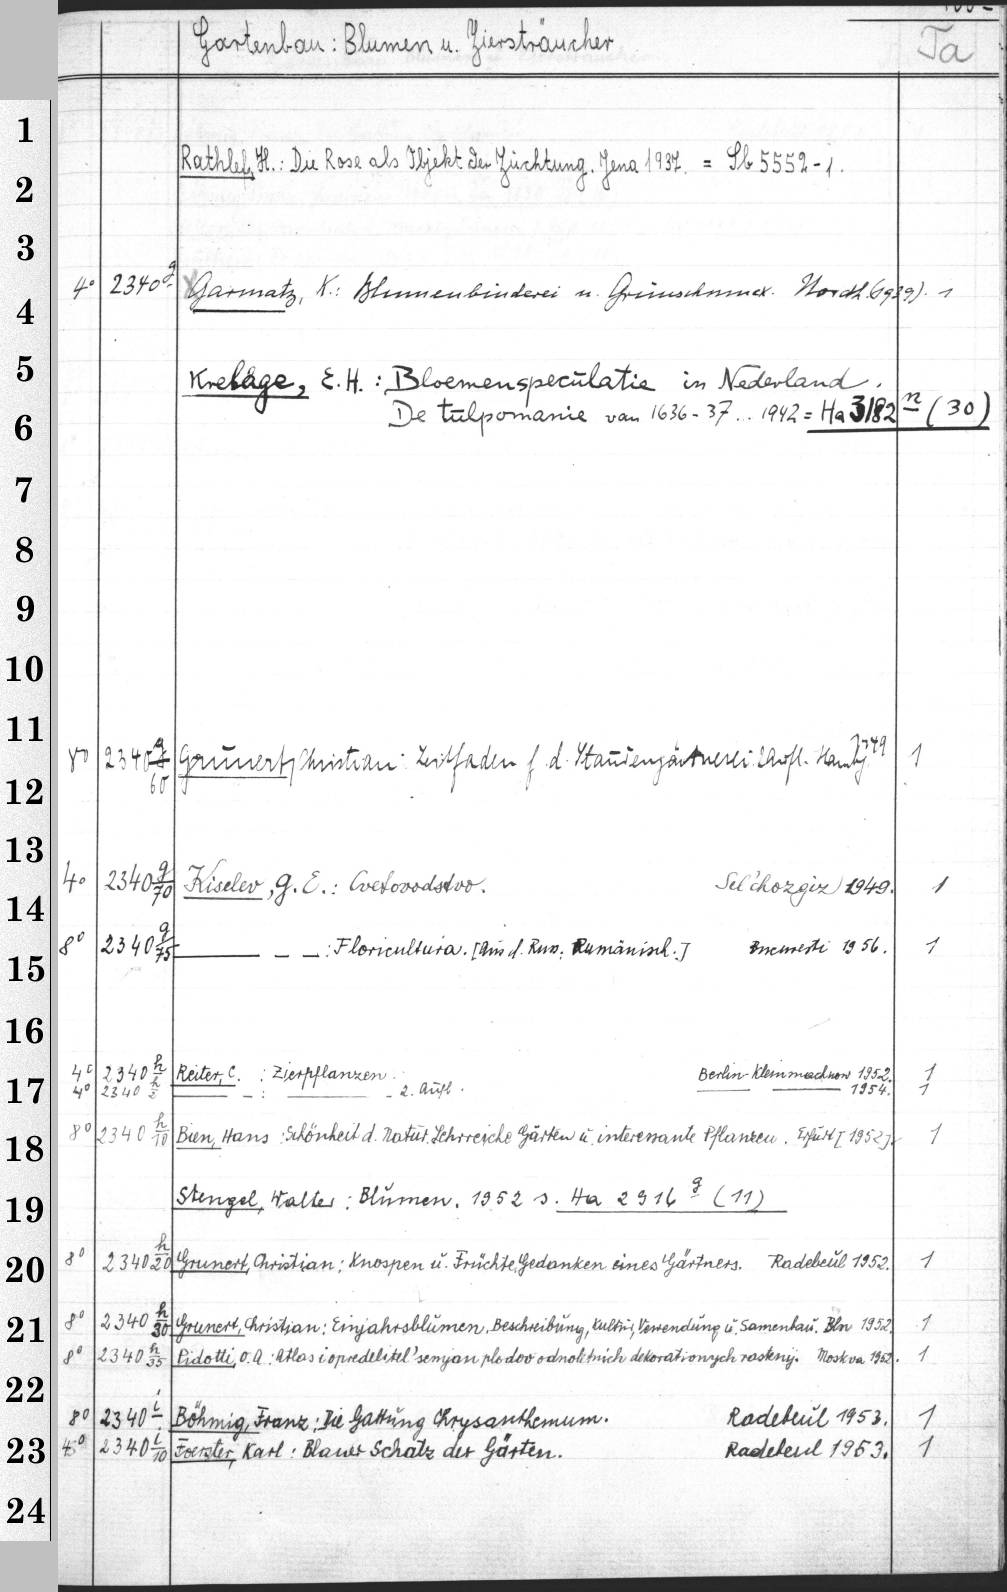 Gartenbau: Blumen u. Ziersträucher
Ta
1
Rathlef, H.: Die Rose als Objekt der Züchtung. Jena 1937. = Sb 5552-1.
2
3
4° 2340 g Garmatz, K.: Blumenbinderei u. Grünschmuck. Nordh. (1939). 1
4
5
Krelage, E.H.: Bloemenspeculatie in Nederland.
De tulpomanie van 1636-37... 1942 = Ha 3182 n (30)
6
7
8
9
10
11
8° 2340 g/60 Grunert, Christian: Leitfaden f. d. Staudengärtnerei. 2. Aufl. 1949 1
12
13
4° 2340 g/70 Kiselev, G. E.: Cvetovodstvo. Sel'chozgiz 1949. 1
14
8° 2340 g/75 ——— — —: Floricultura. [Aus d. Russ. Rumänisch.] Bucuresti 1956. 1
15
16
4° 2340 h Reiter, C. : Zierpflanzen. Berlin-Kleinmachnow 1952. 1
17
4° 2340 h/2 ——— — : ——— . 2. Aufl. ——— ——— 1954. 1
8° 2340 h/10 Bien, Hans: Schönheit d. Natur. Lehrreiche Gärten u. interessante Pflanzen. Erfurt [1952]. 1
18
Stengel, Walter: Blumen. 1952 s. Ha 2916 g (11)
19
8° 2340 h/20 Grunert, Christian: Knospen u. Früchte, Gedanken eines Gärtners. Radebeul 1952. 1
20
8° 2340 h/30 Grunert, Christian: Einjahrsblumen. Beschreibung, Kultur, Verwendung u. Samenbau. Bln 1952 1
21
8° 2340 h/35 Pidotti, O.A.: Atlas i opredelitel' semjan plodov odnoletnich dekorativnych rastenij. Moskva 1952. 1
22
8° 2340 i Böhmig, Franz: Die Gattung Chrysanthemum. Radebeul 1953. 1
23
4° 2340 i/10 Foerster, Karl: Blauer Schatz der Gärten. Radebeul 1953. 1
24